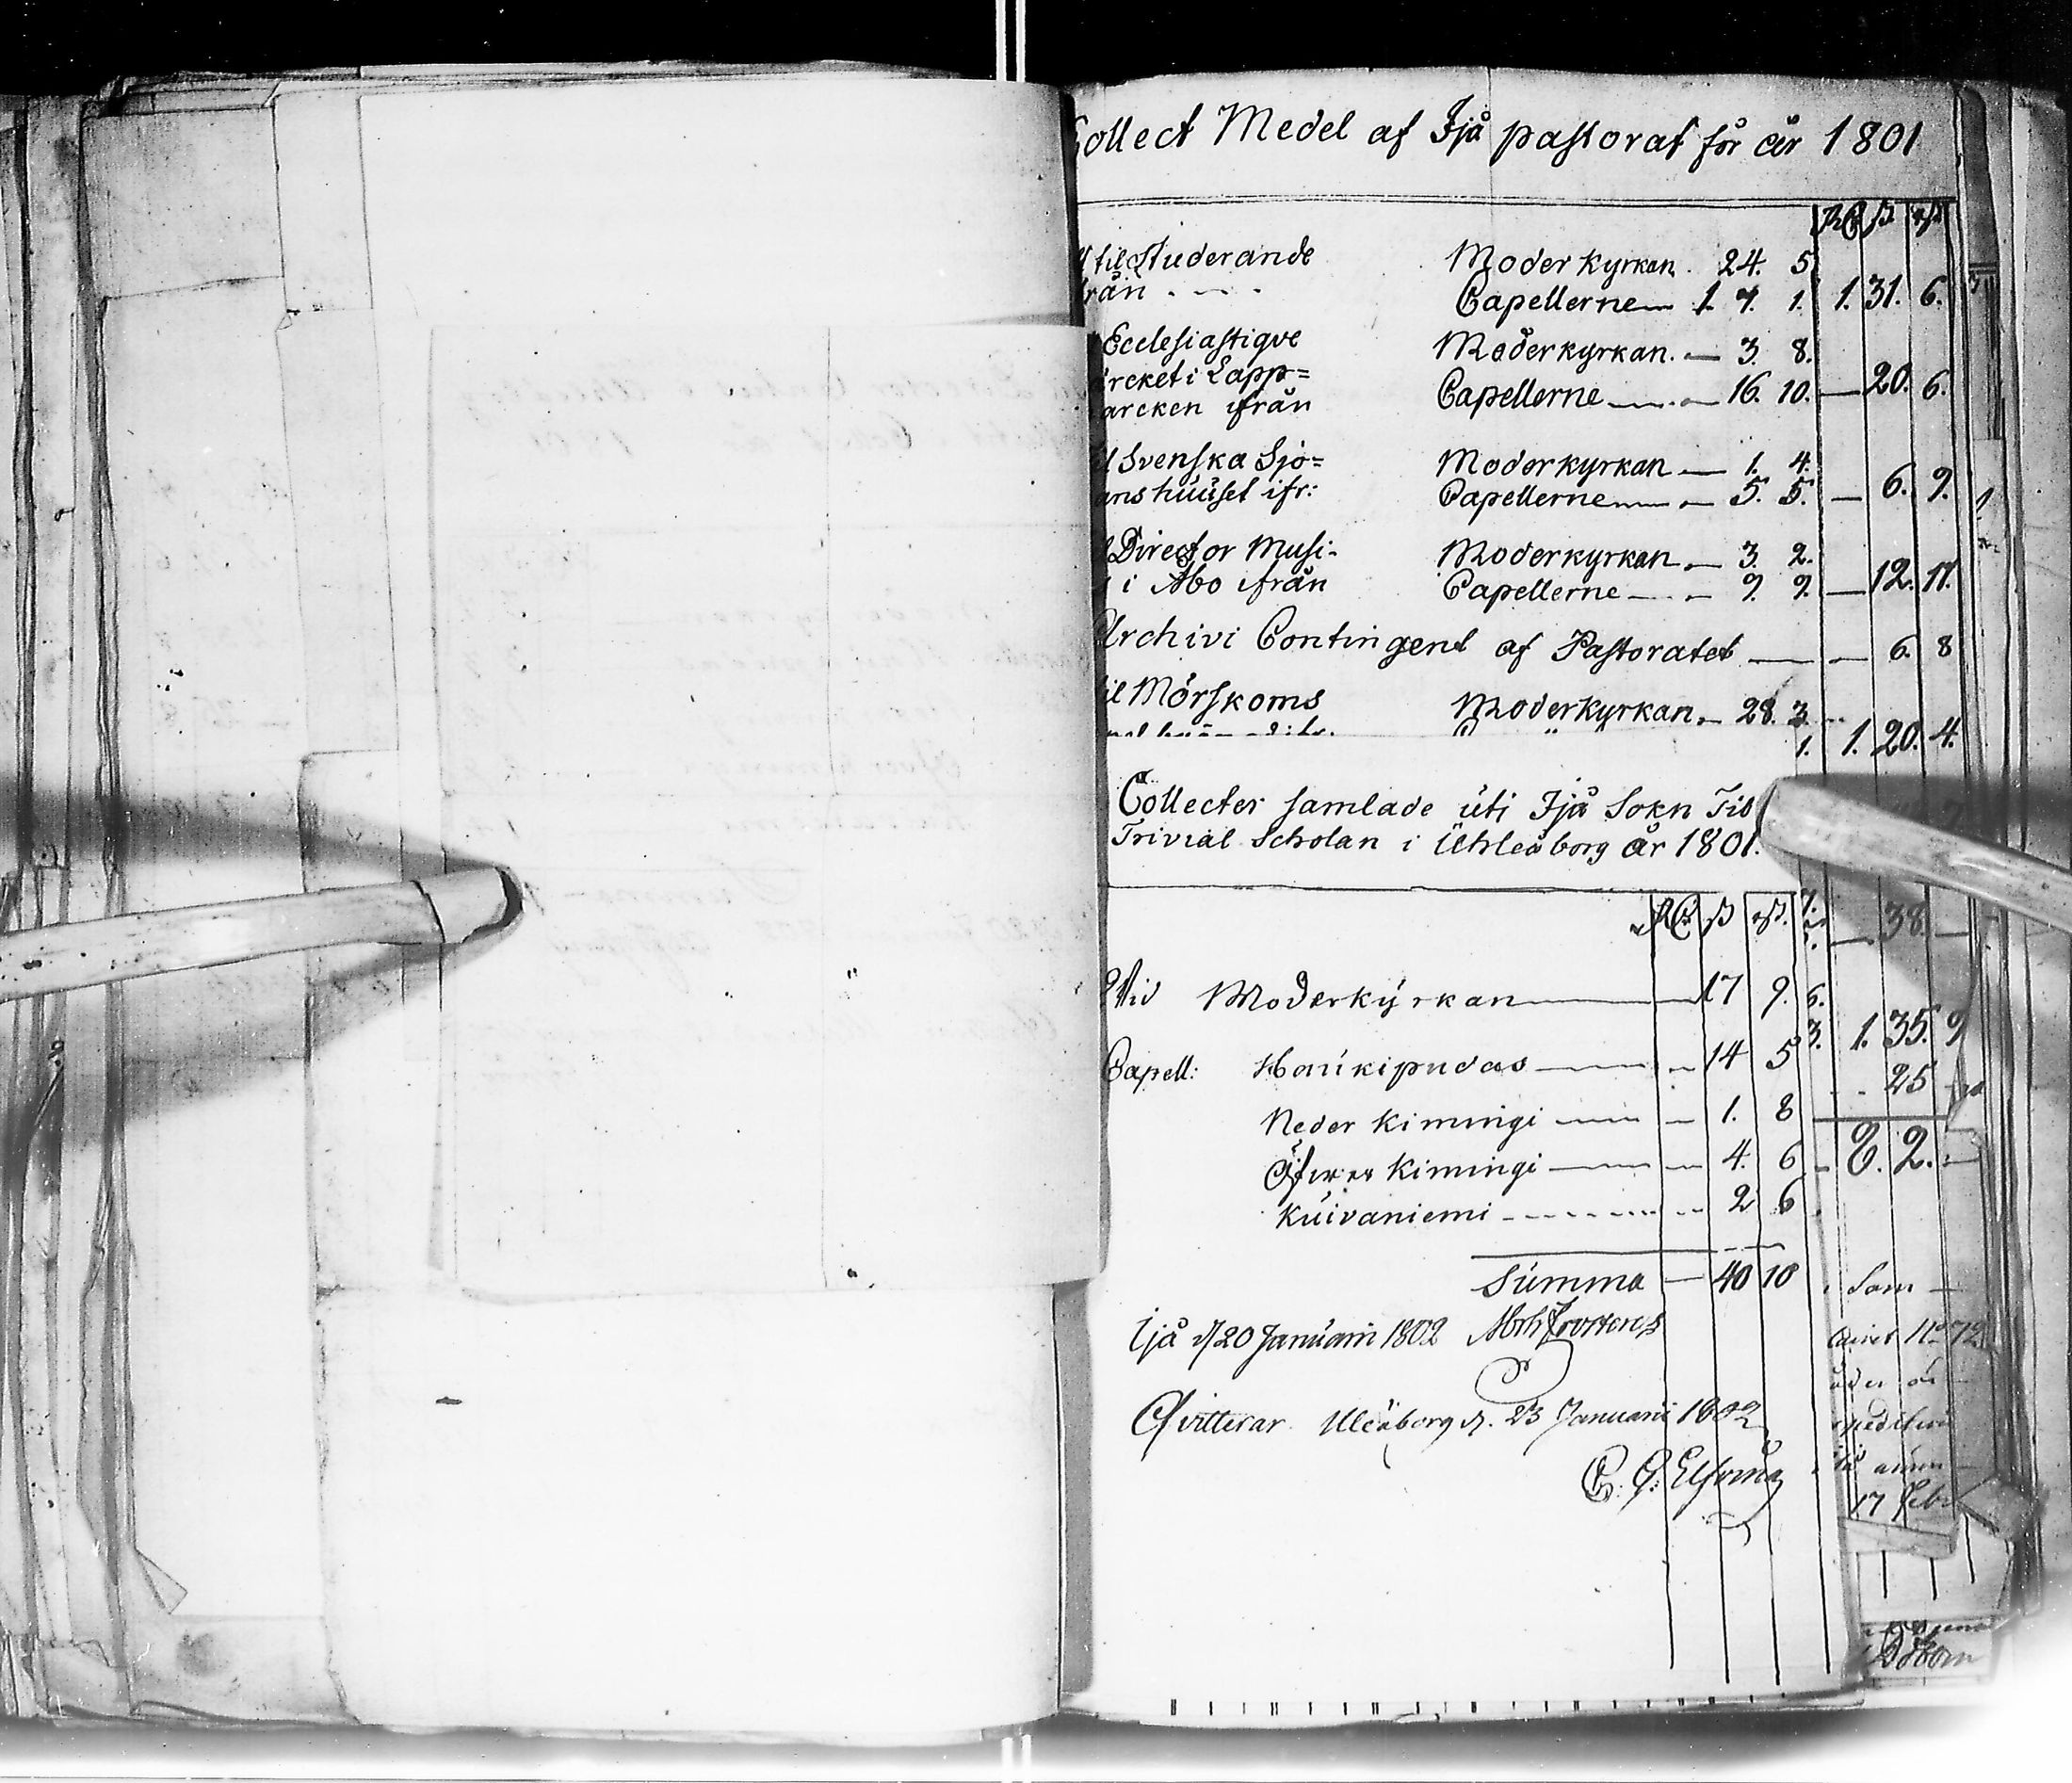 Collect Medel af Ijå pastorat för år 1801
til Studerande Moderkyrkan. 24. 5
från Capellerne 1. 7. 1. 1. 31. 6.
Ecclesiastiqve Moderkyrkan. — 3. 8.
rcket i Lapp=
arcken ifrån Capellerne — 16. 10. — 20. 6.
il Svenska Sjö= Moderkyrkan — 1. 4.
anshuuset ifr: Capellerne — 5. 5. — 6. 9.
Director Musi- Moderkyrkan — 3. 2.
i Åbo ifrån Capellerne — 9. 9. — 12. 11.
Archivi Contingent af Pastoratet — — 6. 8
il Mörskoms Moderkyrkan. — 28. 3.
1. 1. 20. 4.
Collecter samlade uti Ijå Sokn Til
Trivial Scholan i Uhleåborg år 1801.
— 38. —
Wid Moderkyrkan — 17 9.
6.
Capell: Haukipudas — 14 5
3. 1. 35. 9
25
Neder Kimingi — 1. 8
Öfwer Kimingi — 4. 6
8. 2. —
Kuivaniemi — 2 6
Summa — 40 10
Ijå d 20 Januarii 1802
Som —
Qvitterar Uleåborg d. 23 Januarii 1802
C. G. Elfving
17 Febr